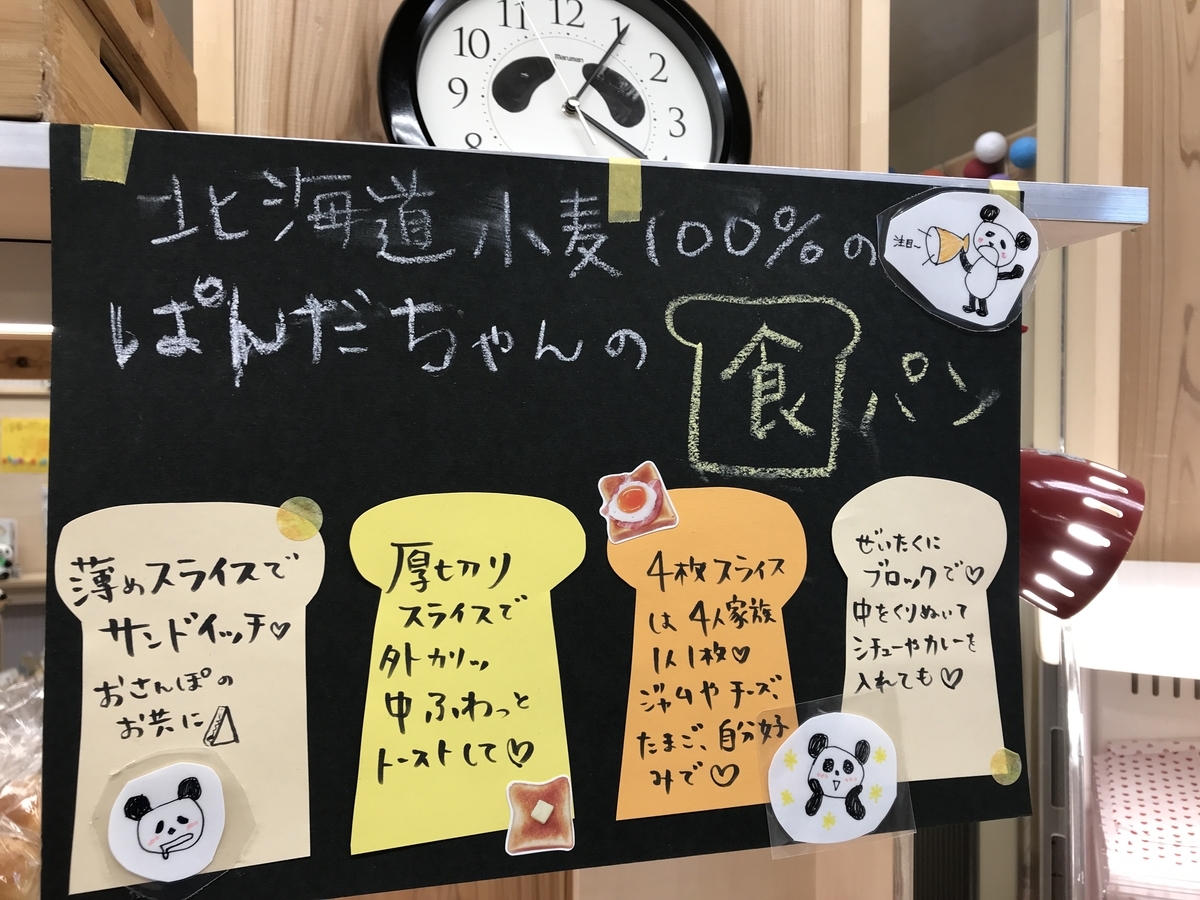 11 12 1
10 2
9 3
8
maruman
北海道小麦100%の
ぱんだちゃんの食パン
注目~
薄めスライスで
サンドイッチ♡
おさんぽの
お共に
厚切り
スライスで
外カリッ
中ふわっと
トーストして♡
4枚スライス
は4人家族
1人1枚♡
ジャムやチーズ、
たまご、自分好
みで♡
ぜいたくに
ブロックで♡
中をくりぬいて
シチューやカレーを
入れても♡